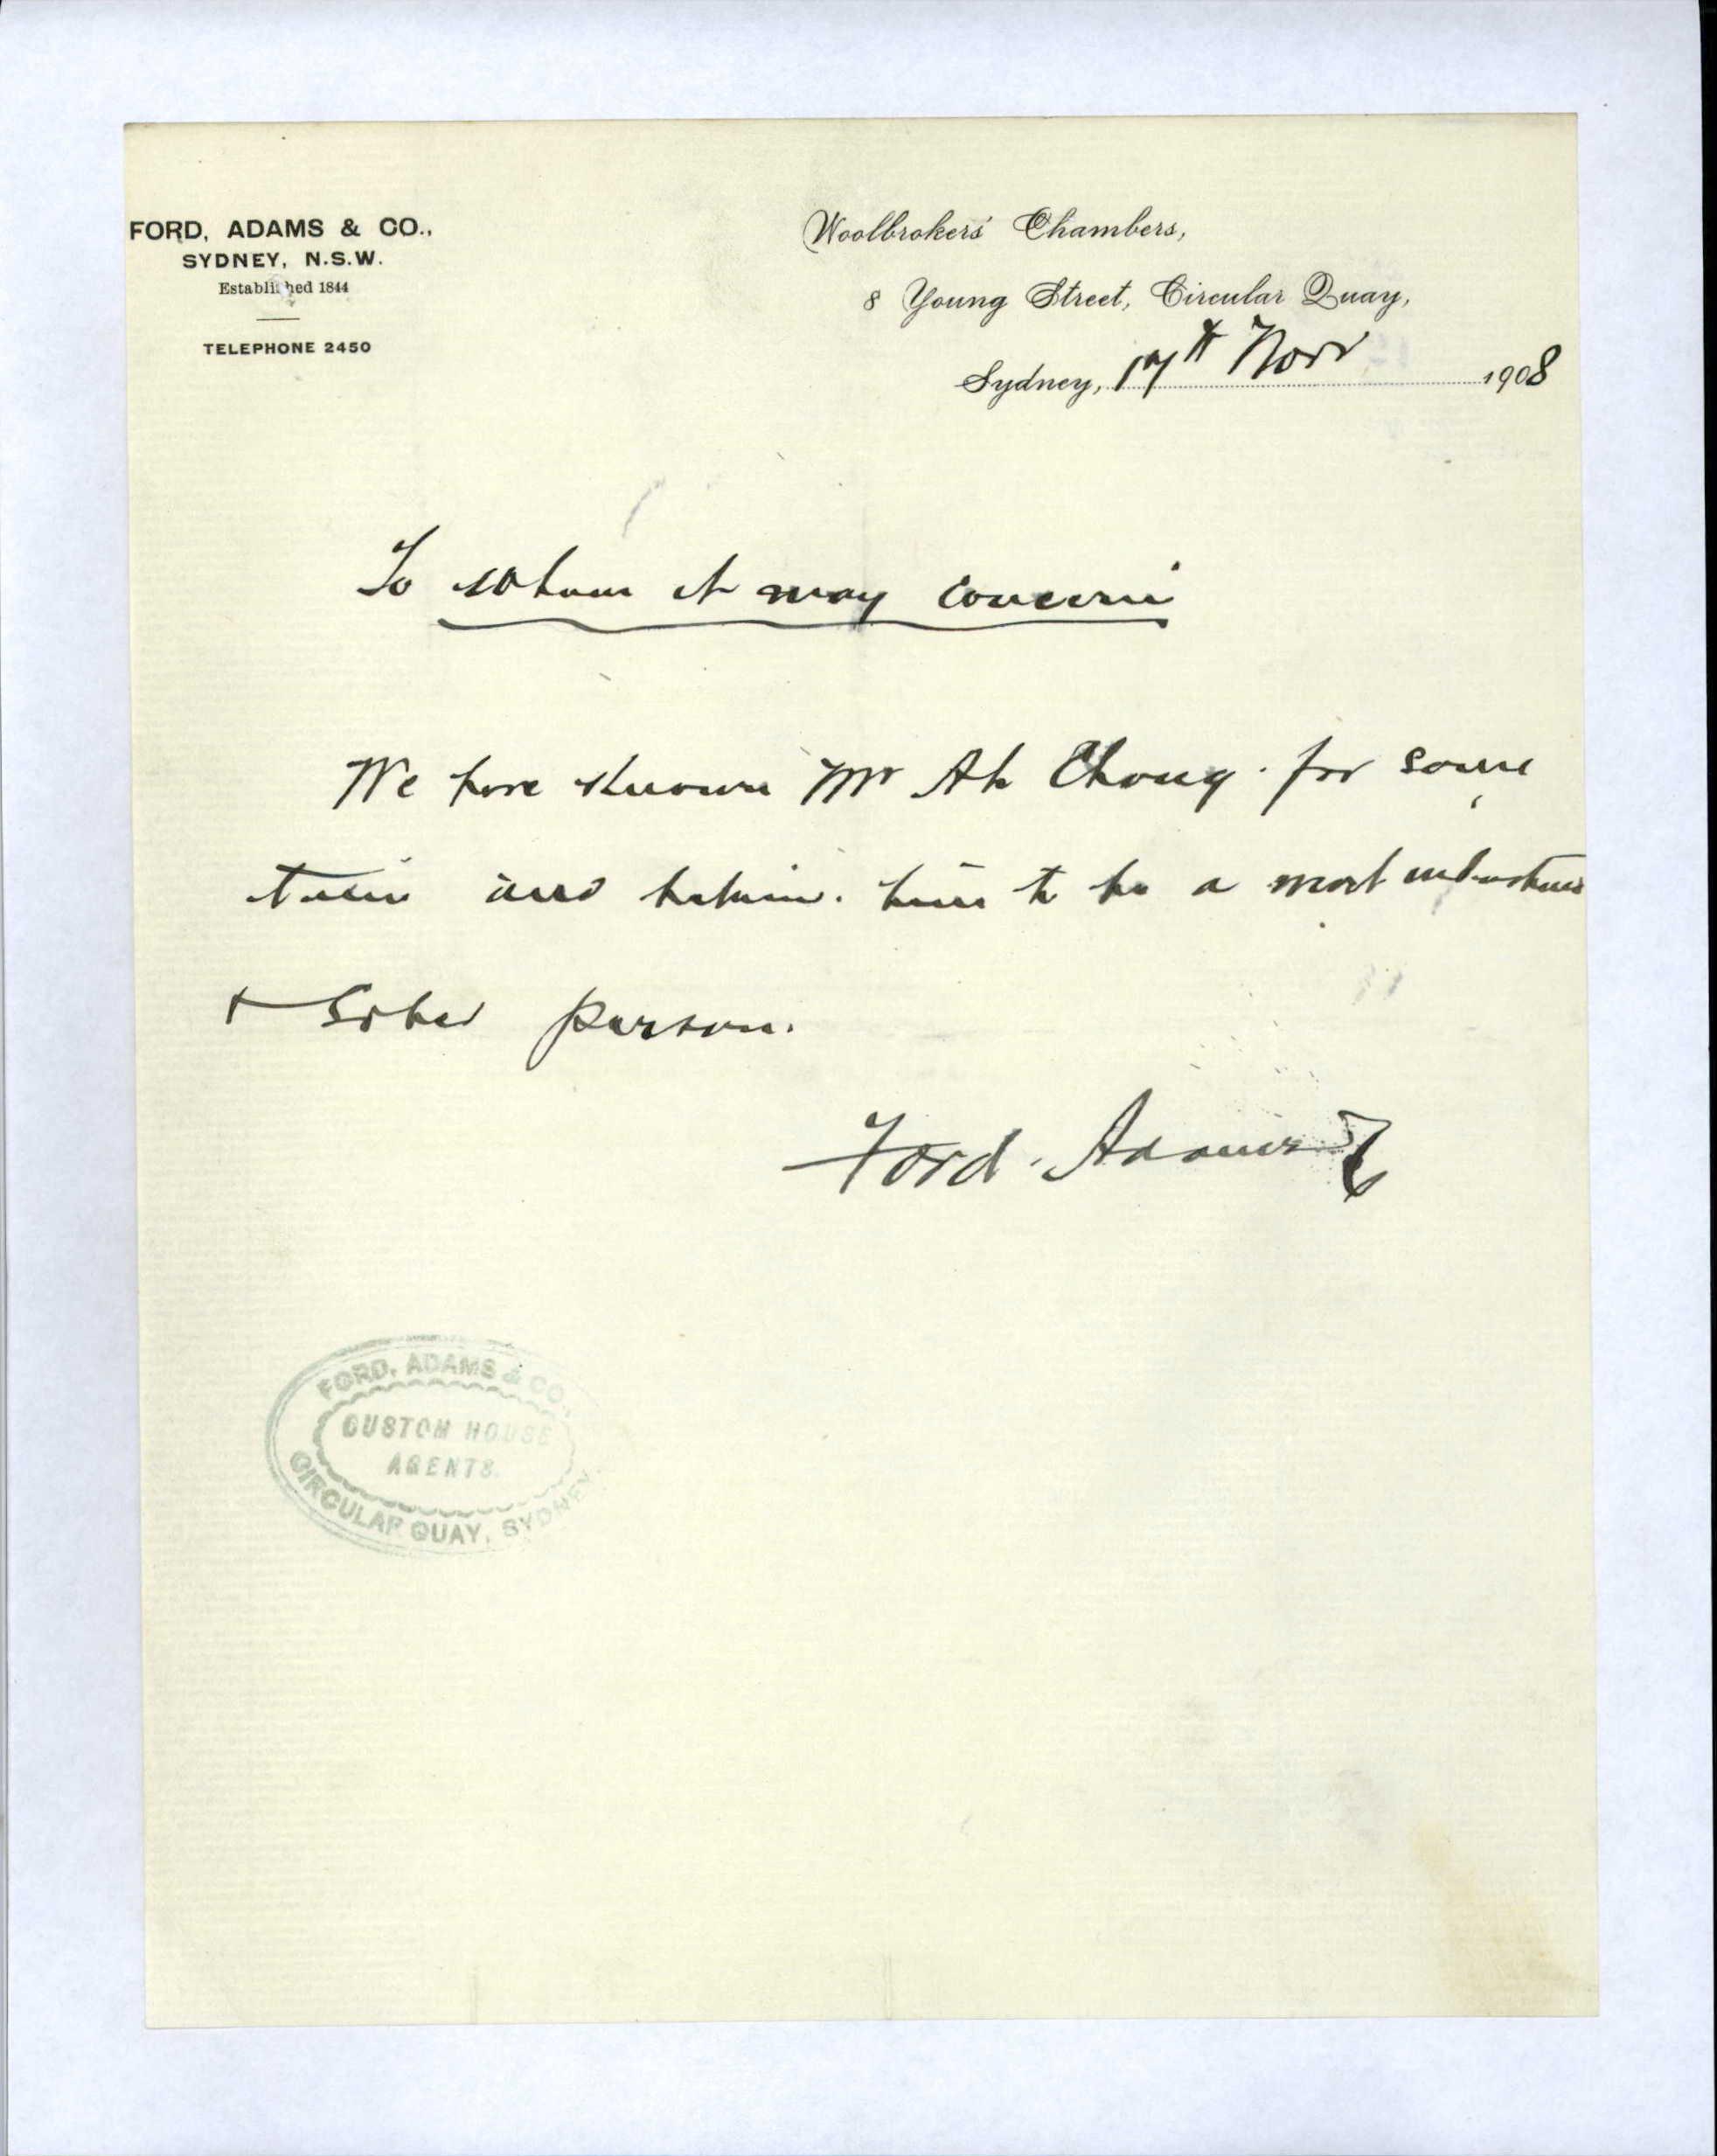 FORD, ADAMS & CO.,
SYDNEY, N.S.W.
Established 1844
TELEPHONE 2450
Woolbrokers' Chambers,
8 Young Street, Circular Quay,
Sydney, 17th Novr 1908
To whom it may concern
We have known Mr Ah Chong for some
time and believe him to be a most industrious
+ Sober person.
Ford Adams & Co
FORD, ADAMS & CO.,
CUSTOM HOUSE
AGENTS.
CIRCULAR QUAY, SYDNEY.